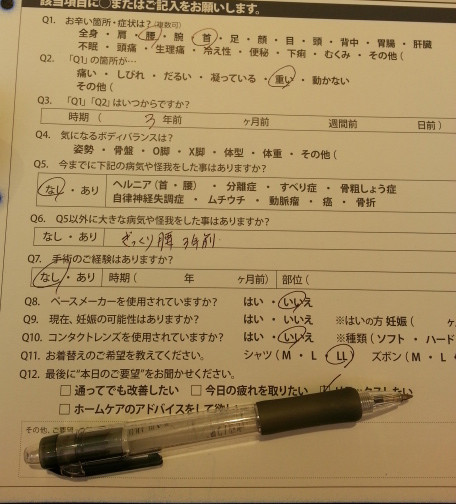 該当項目に○またはご記入をお願いします。
Q1. お辛い箇所・症状は?(複数可)
全身・肩・腰・腕・首・足・顔・目・頭・背中・胃腸・肝臓
不眠・頭痛・生理痛・冷え性・便秘・下痢・むくみ・その他(
Q2. 「Q1」の箇所が…
痛い・しびれ・だるい・凝っている・重い・動かない
その他(
Q3. 「Q1」「Q2」はいつからですか?
時期 ( 3 年前 ヶ月前 週間前 日前 )
Q4. 気になるボディバランスは?
姿勢・骨盤・O脚・X脚・体型・体重・その他(
Q5. 今までに下記の病気や怪我をした事はありますか?
なし・あり ヘルニア(首・腰)・分離症・すべり症・骨粗しょう症
自律神経失調症・ムチウチ・動脈瘤・癌・骨折
Q6. Q5以外に大きな病気や怪我をした事はありますか?
なし・あり ぎっくり腰 3年前
Q7. 手術のご経験はありますか?
なし・あり 時期( 年 ヶ月前) 部位(
Q8. ペースメーカーを使用されていますか? はい・いいえ
Q9. 現在、妊娠の可能性はありますか? はい・いいえ ※はいの方 妊娠(
Q10. コンタクトレンズを使用されていますか? はい・いいえ ※種類(ソフト・ハード
Q11. お着替えのご希望を教えてください。 シャツ(M・L・LL) ズボン(M・L・
Q12. 最後に"本日のご要望"をお聞かせください。
□通ってでも改善したい □今日の疲れを取りたい
□ホームケアのアドバイスをして欲し
その他、ご要望